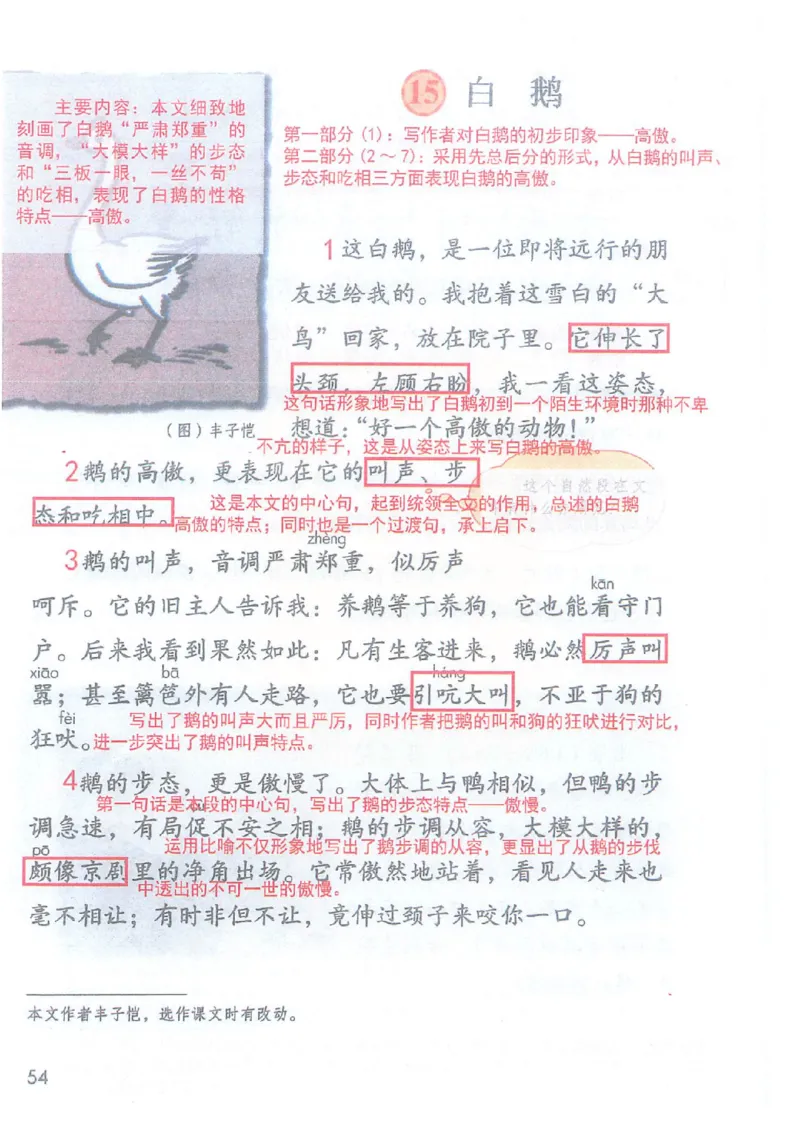 15 白 鹅
主要内容：本文细致地
刻画了白鹅“严肃郑重”的
音调，“大模大样”的步态
和“三板一眼，一丝不苟”
的吃相，表现了白鹅的性格
特点——高傲。
第一部分（1）：写作者对白鹅的初步印象——高傲。
第二部分（2～7）：采用先总后分的形式，从白鹅的叫声、
步态和吃相三方面表现白鹅的高傲。
1这白鹅，是一位即将远行的朋
友送给我的。我抱着这雪白的“大
鸟”回家，放在院子里。它伸长了
头颈，左顾右盼，我一看这姿态，
这句话形象地写出了白鹅初到一个陌生环境时那种不卑
（图）丰子恺
想道：“好一个高傲的动物！”
不亢的样子，这是从姿态上来写白鹅的高傲。
2鹅的高傲，更表现在它的叫声、步
这个自然段在文
这是本文的中心句，起到统领全文的作用，总述的白鹅
态和吃相中。
高傲的特点；同时也是一个过渡句，承上启下。
zhèng
3鹅的叫声，音调严肃郑重，似厉声
kān
呵斥。它的旧主人告诉我：养鹅等于养狗，它也能看守门
户。后来我看到果然如此：凡有生客进来，鹅必然厉声叫
xiāo bā háng
嚣；甚至篱笆外有人走路，它也要引吭大叫，不亚于狗的
fèi
写出了鹅的叫声大而且严厉，同时作者把鹅的叫和狗的狂吠进行对比，
狂吠。进一步突出了鹅的叫声特点。
4鹅的步态，更是傲慢了。大体上与鸭相似，但鸭的步
第一句话是本段的中心句，写出了鹅的步态特点——傲慢。
调急速，有局促不安之相；鹅的步调从容，大模大样的，
运用比喻不仅形象地写出了鹅步调的从容，更显出了从鹅的步伐
pō
颇像京剧里的净角出场。它常傲然地站着，看见人走来也
中透出的不可一世的傲慢。
毫不相让；有时非但不让，竟伸过颈子来咬你一口。
本文作者丰子恺，选作课文时有改动。
54